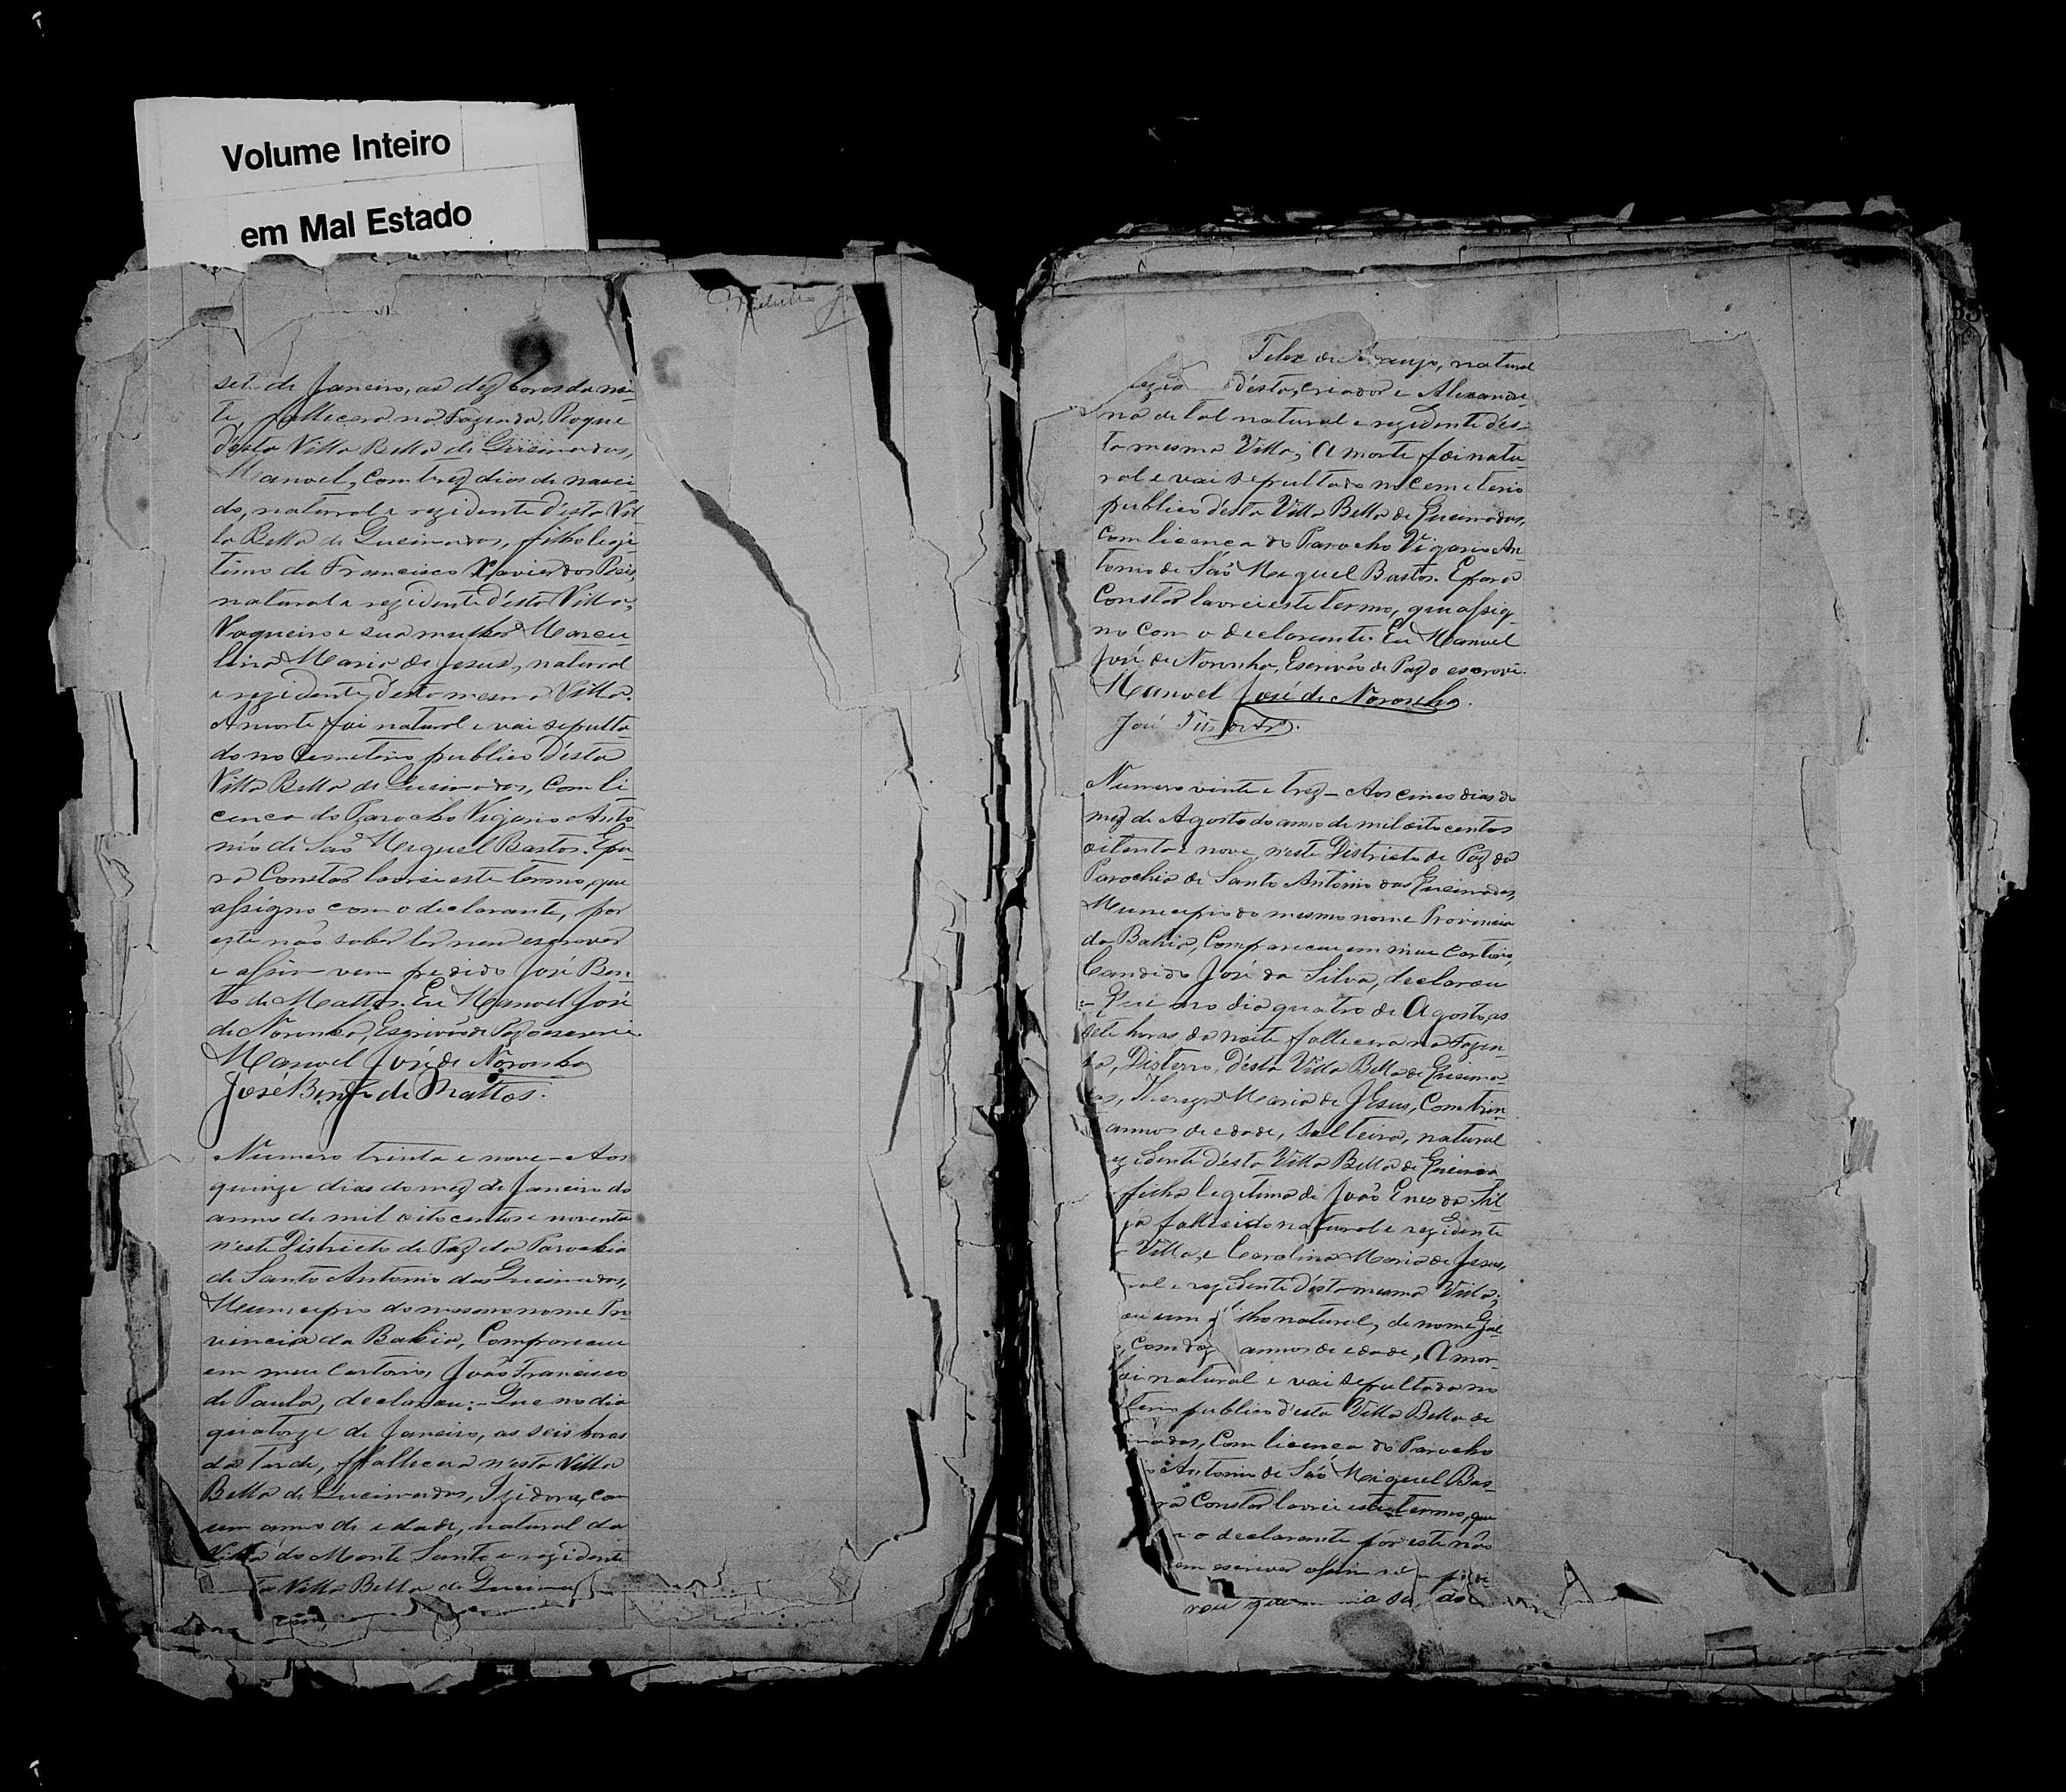 Volume Inteiro
em Mal Estado
sete de Janeiro, as dez horas da noi-
te, fallecera na Fazenda, Roque
d'esta Villa Bella de Queimadas,
Manoel, com trez dias de nasci-
do, natural e rezidente d'esta Vil-
la Bella de Queimadas, filho legi-
timo de Francisco Xavier dos Reis,
natural e rezidente d'esta Villa,
Vaqueiro e sua mulher Marcu-
lina Maria de Jesus, natural
e rezidente d'esta mesma Villa.
A morte foi natural e vai sepulta-
do no Cemeterio publico d'esta
Villa Bella de Queimadas, com li-
cenca do Parocho Vigario Anto
nio de São Miguel Bastos. E pa-
ra Constar lavrei este termo, que
assigno com o declarante, por
este não saber ler nem escrever
e assim vem pedido José Ben-
to de Mattos. Eu Manoel José
de Noronha, Escrivão de Paz o escrevi
Manoel José de Noronha
José Bento de Mattos.
Numero trinta e nove - Aos
quinze dias do mez de Janeiro do
anno de mil oito centos e noventa
n'este Districto de Paz da Parochia
de Santo Antonio das Queimadas,
Municipio do mesmo nome Pro-
vincia da Bahia, Compareceu
em meu Cartorio, João Francisco
de Paula, declarou:- Que no dia
quatorze de Janeiro, as seis horas
da tarde, fallecera n'esta Villa
Bella de Queimadas, Izidora, com
um anno de edade, natural da
Villa do Monte Santo e rezidente
ta Villa Bella de Queima
Felix de Araujo, natural
d'esta, criador e Alexandri-
na de tal natural e rezidente d'es-
ta mesma Villa; A morte foi natu-
ral e vai sepultado no Cemeterio
publico d'esta Villa Bella de Queimadas,
com licenca do Parocho Vigario An
tonio de São Miguel Bastos. E para
Constar lavrei este termo, que assig-
no com o declarante. Eu Manoel
José de Noronha, Escrivão de Paz o escrevi.
Manoel José de Noronha.
José
Numero vinte e trez - Aos cinco dias do
mez de Agosto do anno de mil oito centos
oitenta e nove, n'este Districto de Paz da
Parochia de Santo Antonio das Queimadas,
Municipio do mesmo nome Provincia
da Bahia, Compareceu em meu Cartorio,
Candido José da Silva, declarou
:- Que no dia quatro de Agosto, as
sete horas da noite fallecera na Fazen-
da, Disterro, d'esta Villa Bella de Queima-
das, Thereza Maria de Jesus, Com trin-
annos de edade, Solteira, natural
ezidente d'esta Villa Bella de Queima
filha legitima de João Eneo da Sil-
ja fallecido natural e rezidente
Villa, e Carolina Maria de Jesus,
ral e rezidente d'esta mesma Villa;
ou um filho natural, de nome
com dez annos de edade, A mor-
foi natural e vai sepultada no
terio publico d'esta Villa Bella de
madas, Com licenca do Parocho
Antonio de São Miguel Bas-
ra Constar lavrei este termo, que
o declarante por este não
em escrever assim